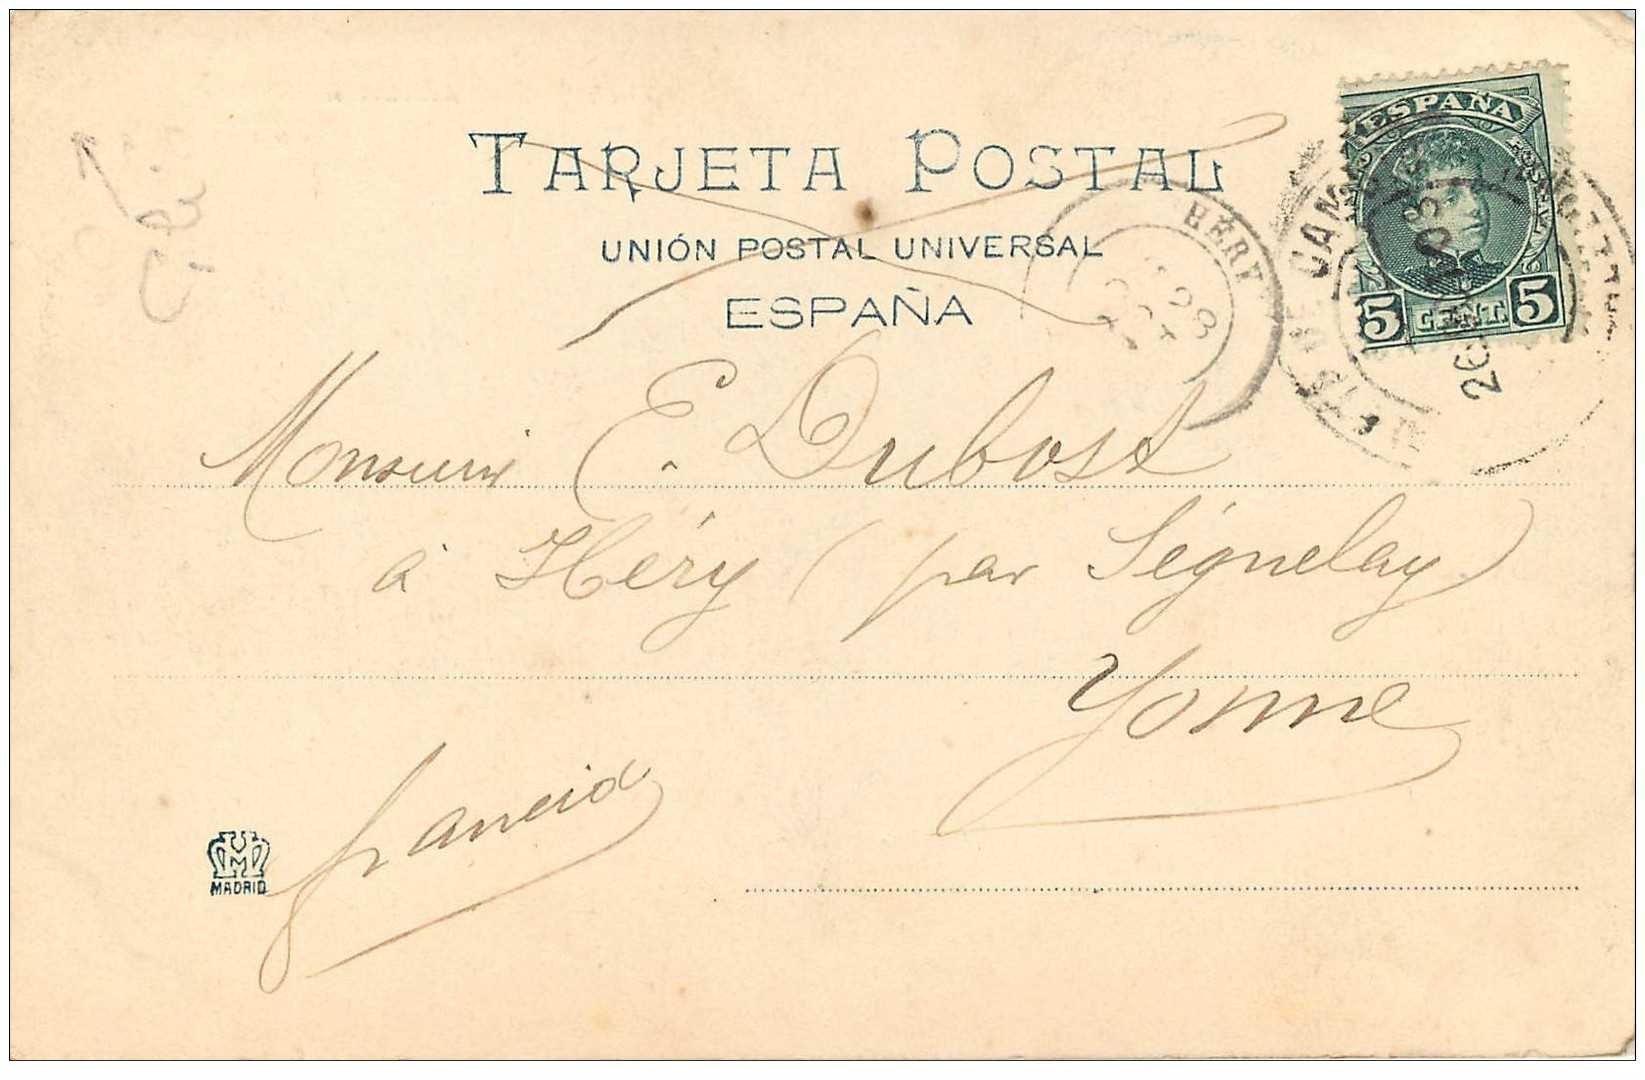 TARJETA POSTAL
UNIÓN POSTAL UNIVERSAL
ESPAÑA
ESPAÑA
5 CENT. 5
DE CAM
26
03
HÉRY
28
Monsieur E. Dubost
à Héry (par Ségnelay)
Yonne
Francia
MADRID